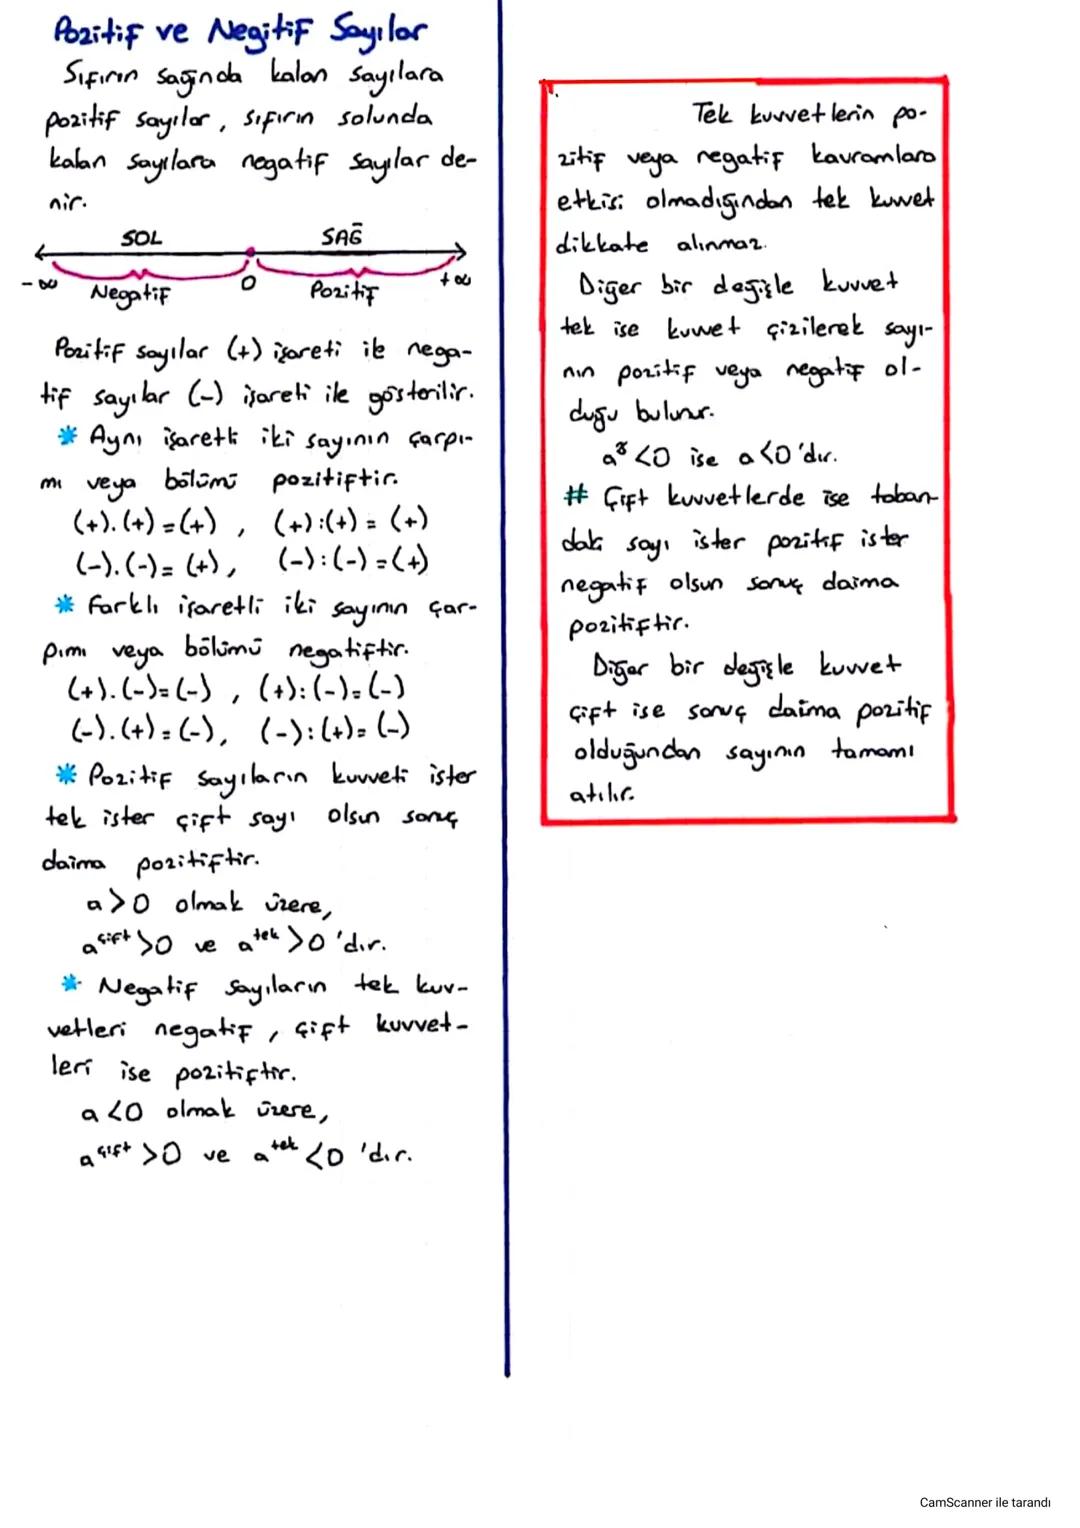 Pozitif ve Negitif Sayılar
Sıfırın sağında kalan sayılara
pozitif sayılar, sıfırın solunda
kalan sayılara negatif sayılar de-
nir.
SOL SAĞ
-∞ Negatif 0 Pozitif +∞
Pozitif sayılar (+) işareti ile nega-
tif sayılar (-) işareti ile gösterilir.
* Aynı işaretli iki sayının çarpı-
mı veya bölümü pozitiftir.
(+).(+)=(+), (+):(+)=(+)
(-).(-)=(+), (-):(-)=(+)
* Farklı işaretli iki sayının çar-
pımı veya bölümü negatiftir.
(+).(-)=(-), (+):(-)=(-)
(-).(+)=(-), (-):(+)=(-)
* Pozitif sayıların kuvveti ister
tek ister çift sayı olsun sonuç
daima pozitiftir.
a>0 olmak üzere,
a^çift >0 ve a^tek >0 'dır.
* Negatif sayıların tek kuv-
vetleri negatif, çift kuvvet-
leri ise pozitiftir.
a<0 olmak üzere,
a^çift >0 ve a^tek <0 'dır.
Tek kuvvetlerin po-
zitif veya negatif kavramlara
etkisi olmadığından tek kuvvet
dikkate alınmaz.
Diğer bir değişle kuvvet
tek ise kuvvet çizilerek sayı-
nın pozitif veya negatif ol-
duğu bulunur.
<0 ise a<0 'dır.
# Çift kuvvetlerde ise taban-
daki sayı ister pozitif ister
negatif olsun sonuç daima
pozitiftir.
Diğer bir değişle kuvvet
çift ise sonuç daima pozitif
olduğundan sayının tamamı
atılır.
CamScanner ile tarandı